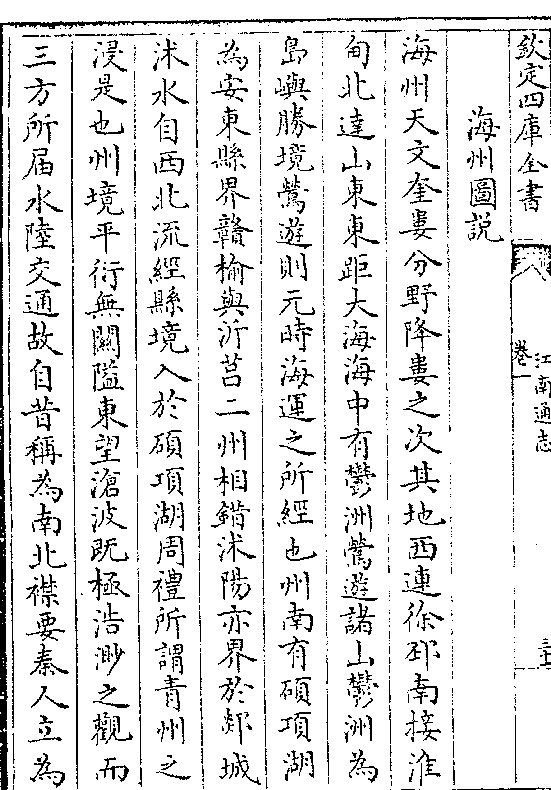 欽定四庫全書
江南通志
卷一
三
海州圖説
海州天文奎婁分野降婁之次其地西連徐邳南接淮
甸北達山東東距大海海中有鬱洲鶯遊諸山鬱洲為
島嶼勝境鶯遊則元時海運之所經也州南有碩項湖
為安東縣界贛榆與沂莒二州相錯沭陽亦界於郯城
沭水自西北流經縣境入於碩項湖周禮所謂青州之
浸是也州境平衍無關隘東望滄波既極浩渺之觀而
三方所届水陸交通故自昔稱為南北襟要秦人立為